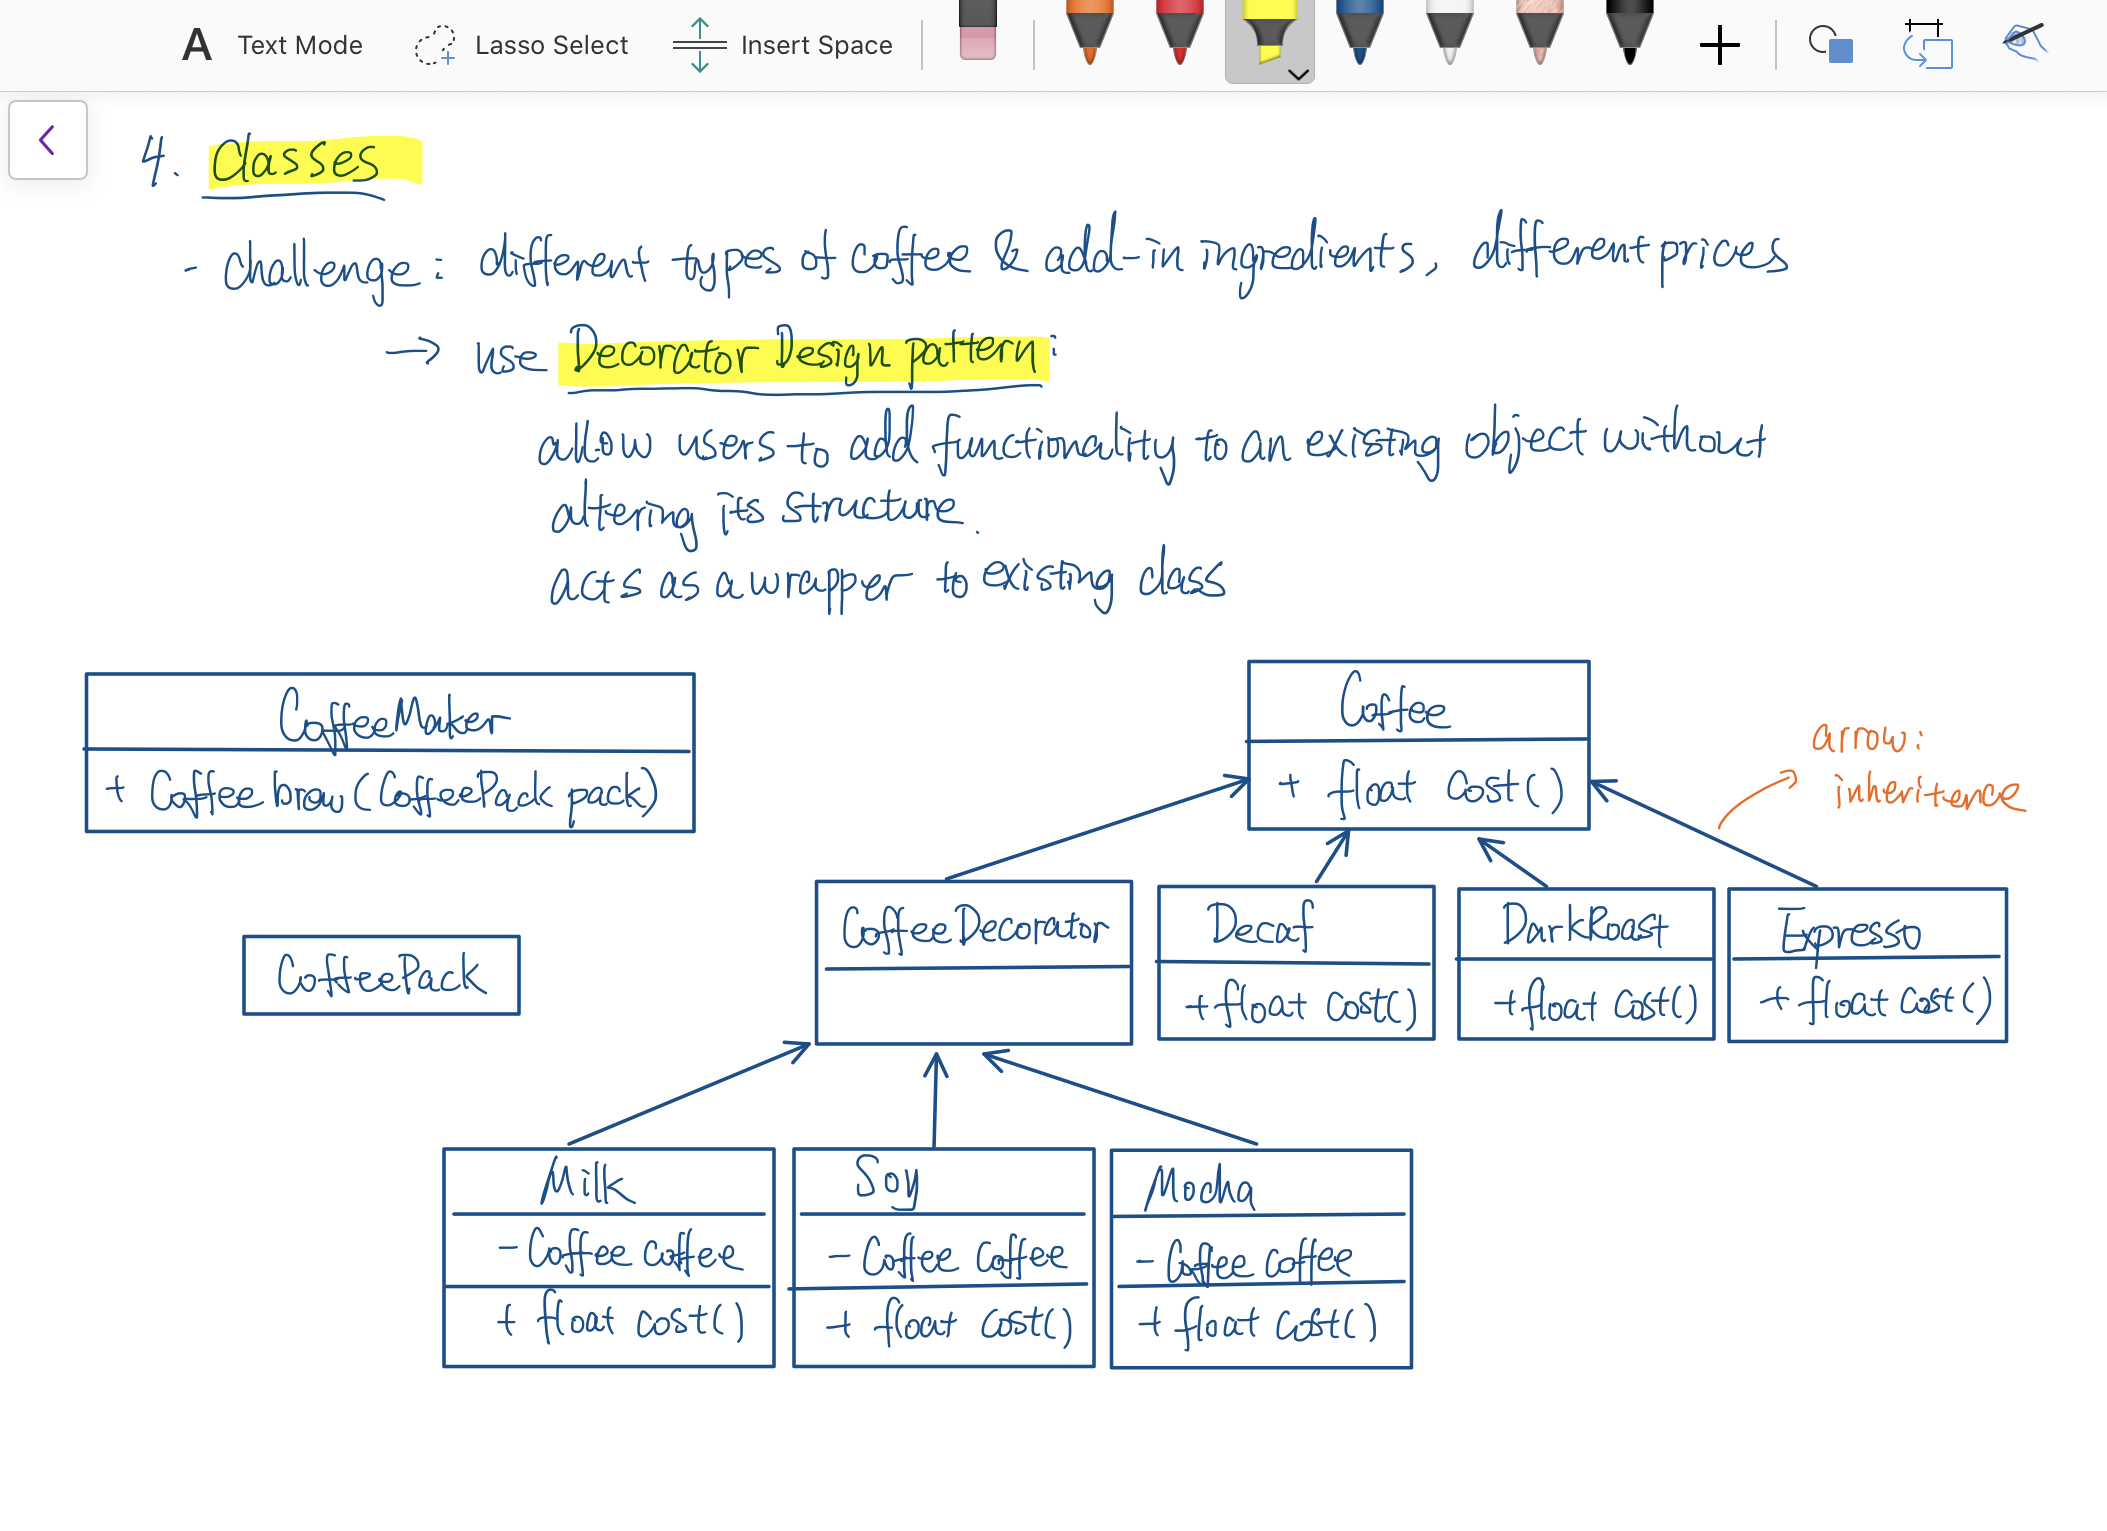 A Text Mode Lasso Select Insert Space
4. Classes
- challenge: different types of coffee & add-in ingredients, different prices
→ use Decorator Design pattern:
allow users to add functionality to an existing object without
altering its structure.
acts as a wrapper to existing class
CoffeeMaker
+ Coffee brew(CoffeePack pack)
Coffee
+ float cost()
arrow:
inheritence
CoffeePack
CoffeeDecorator
Decaf
+ float cost()
DarkRoast
+ float cost()
Expresso
+ float cost()
Milk
- Coffee coffee
+ float cost()
Soy
- Coffee coffee
+ float cost()
Mocha
- Coffee coffee
+ float cost()